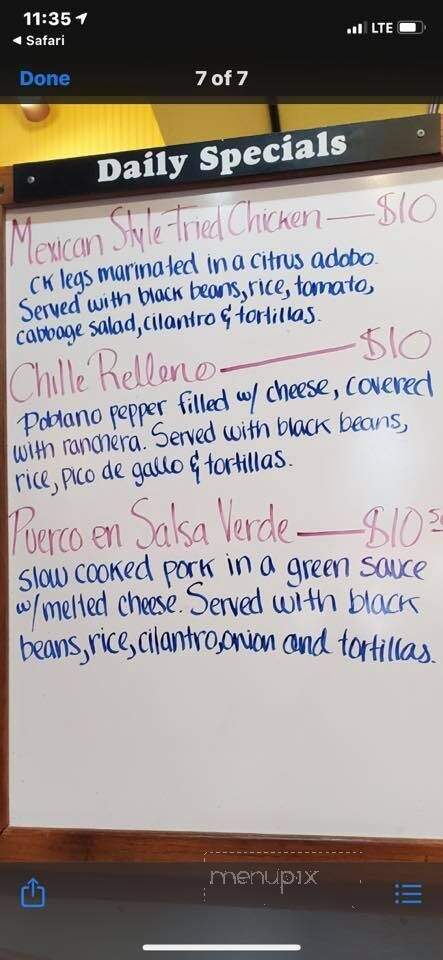 11:35
LTE
Safari
Done
7 of 7
Daily Specials
Mexican Style Fried Chicken — $10
CK legs marinated in a citrus adobo.
Served with black beans, rice, tomato,
cabbage salad, cilantro & tortillas.
Chille Relleno — $10
Poblano pepper filled w/ cheese, covered
with ranchera. Served with black beans,
rice, pico de gallo & tortillas.
Puerco en Salsa Verde — $10
slow cooked pork in a green sauce
w/ melted cheese. Served with black
beans, rice, cilantro, onion and tortillas.
menupix